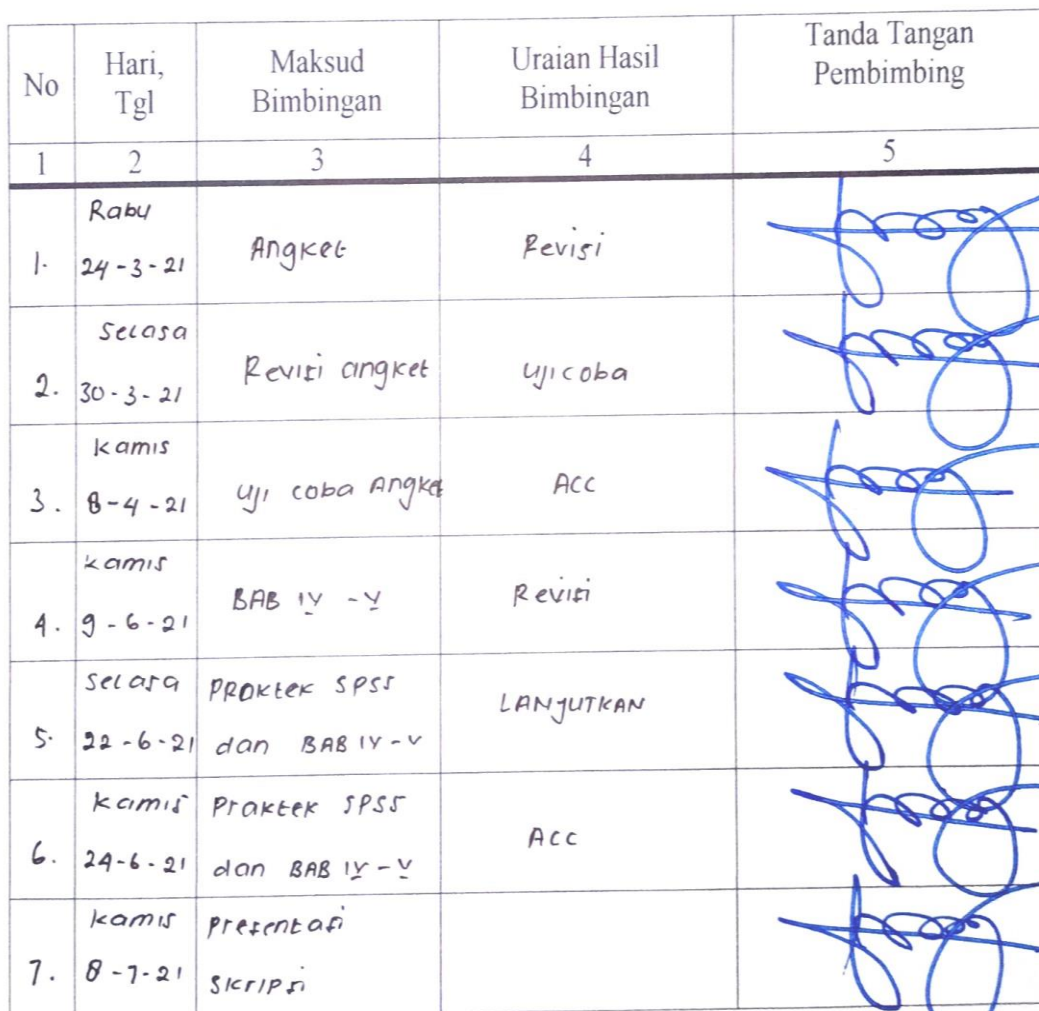 No Hari, Tgl Maksud Bimbingan Uraian Hasil Bimbingan Tanda Tangan Pembimbing
1 2 3 4 5
1. Rabu 24-3-21 Angket Revisi
2. Selasa 30-3-21 Revisi angket uji coba
3. Kamis 8-4-21 uji coba Angket ACC
4. Kamis 9-6-21 BAB IV - V Revisi
5. Selasa 22-6-21 PRAktek SPSS dan BAB IV-V LANJUTKAN
6. Kamis 24-6-21 Praktek SPSS dan BAB IV-V ACC
7. Kamis 8-7-21 presentasi SKripsi